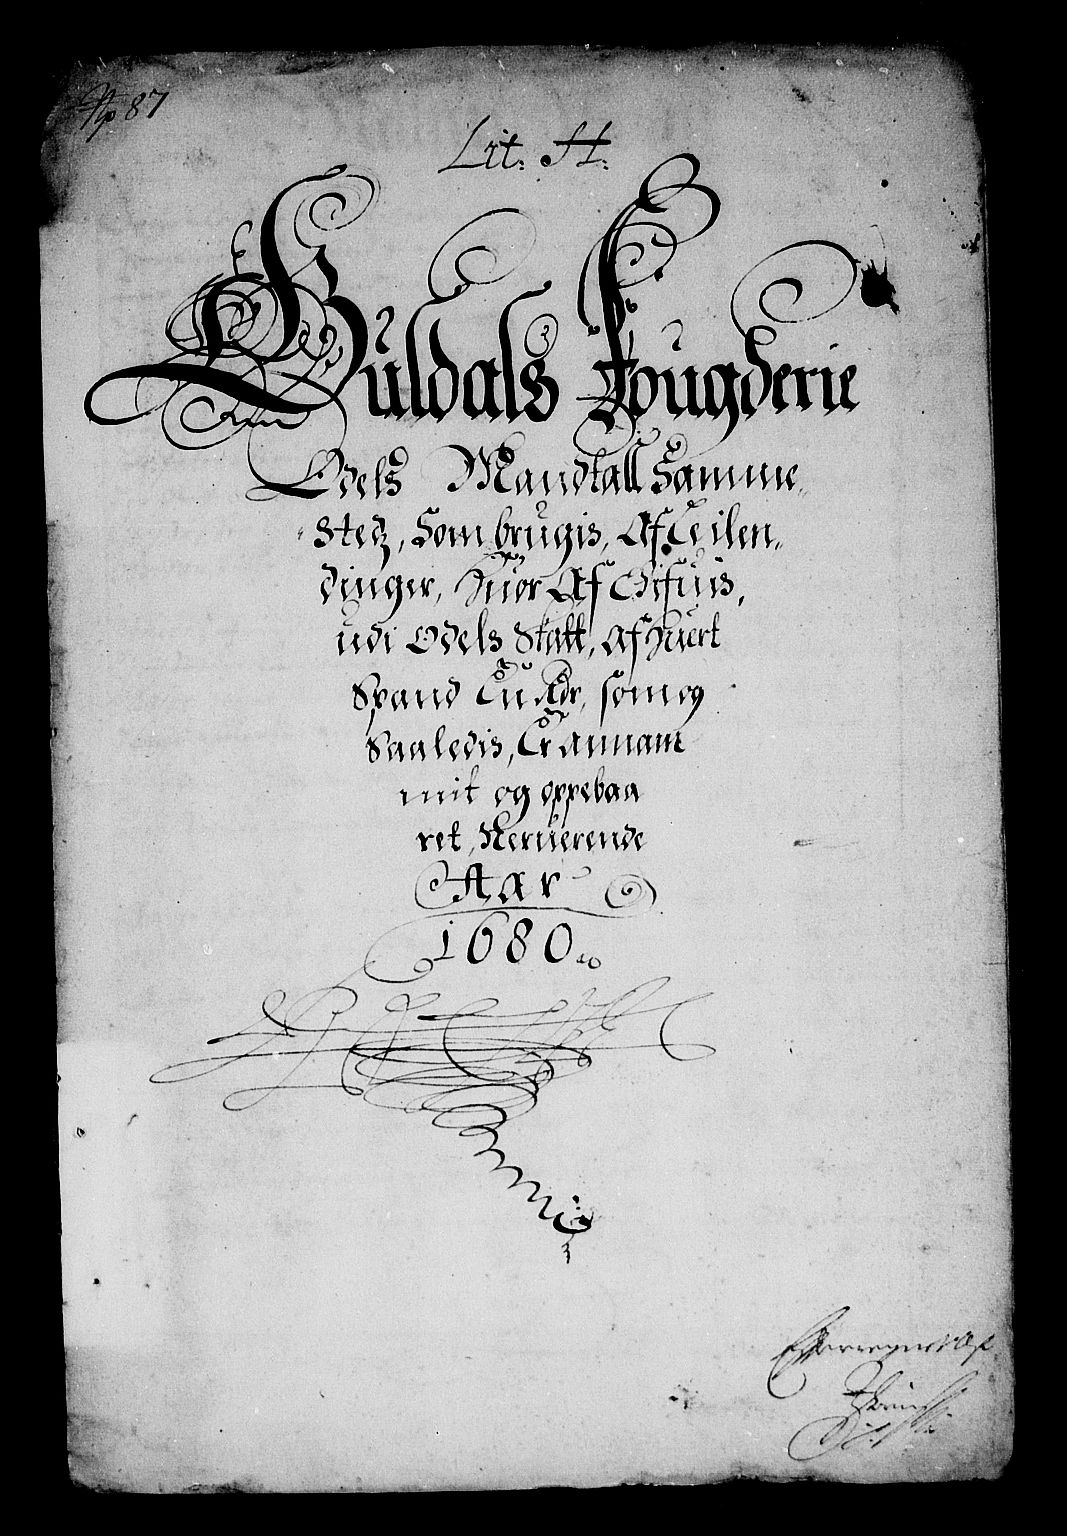 No 87
Lit: H:
Guldals Fougderie
Odels Mandtall Samme„
Stedz, Som brugis, Af Ceilen„
dinger, Huor Af Gifuis,
udi Odels Skatt, Af Huert
Spand Tu Adr, som og
Saaledis, Er annam
mit og oppebaa
ret, Neruerende
Aar
1680